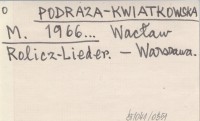 D
PODRAZA-KWIATKOWSKA
M. 1966... Wacław
Rolicz-Lieder. – Warszawa.